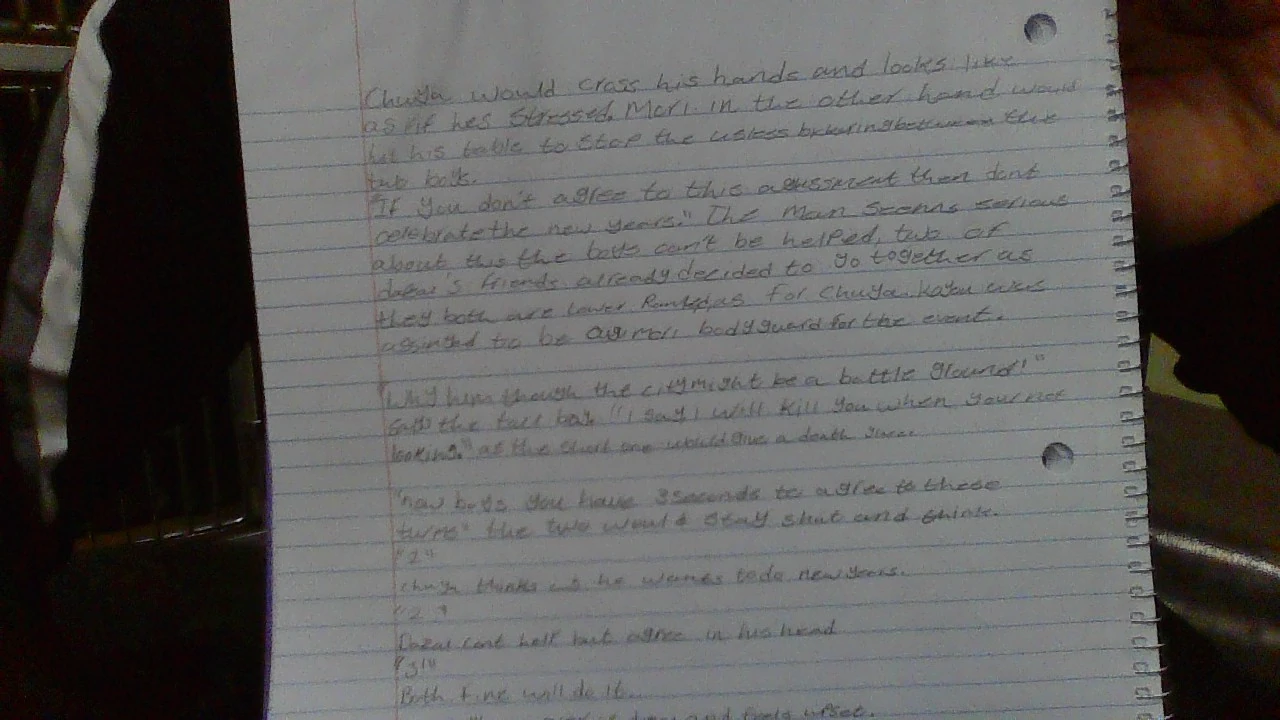 Chuya would cross his hands and looks like
as if hes stressed. Mori in the other hand would
hit his table to stop the usless bickering between the
two boys.
"If you don't agree to this then dont
celebrate the new years." The man seems serious
about this the boys can't be helped, two of
dazai's friends already decided to go together as
they both are lower Ranked, as for Chuya. koyou was
to be mori bodyguard for the event.
"Why him though the city might be a battle ground!"
the tall boy. "I say I will kill you when your not
looking." as the short one would give a death glare.
"now boys you have 3 seconds to agree to these
turms" the two would stay shut and think.
"1"
thinks he to do new years.
"2"
Dazai cant but agree in his head
"3!"
Both fine will do it.
and feels upset.